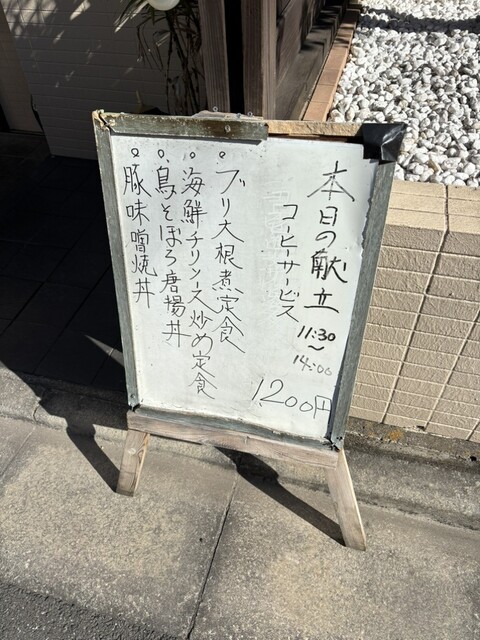 本日の献立
11:30
〜
14:00
コーヒーサービス
1200円
ブリ大根煮定食
海鮮チリソース炒め定食
鳥そぼろ唐揚丼
豚味噌焼丼